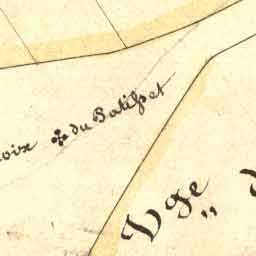 oix du Batisset
Vge „